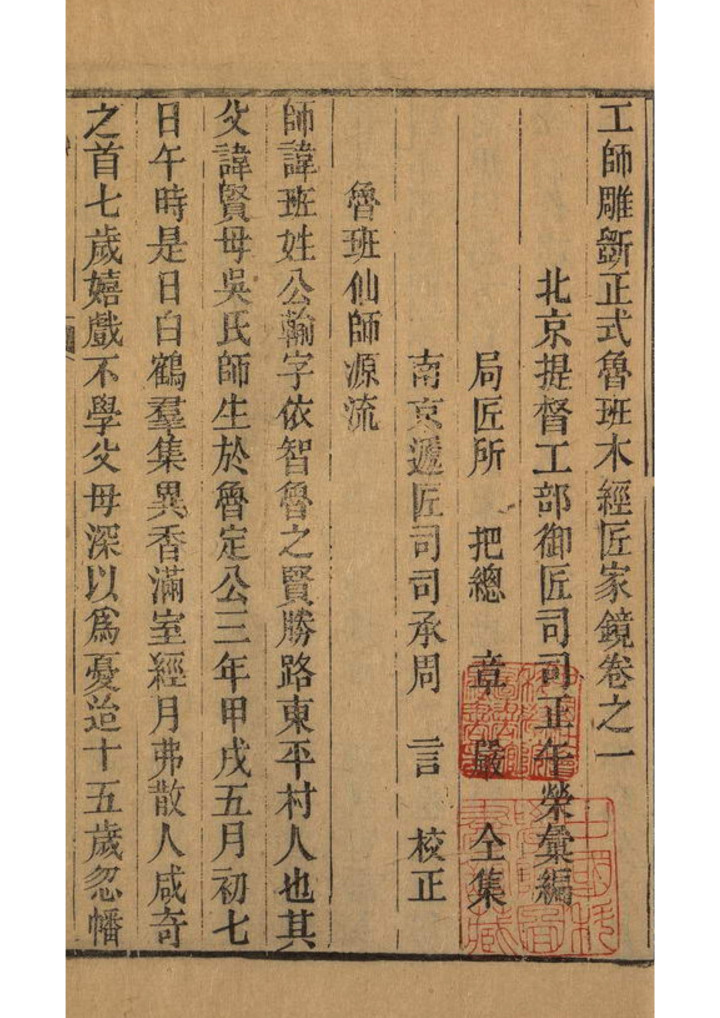 工師雕斵正式魯班木經匠家鏡卷之一
北京提督工部御匠司司正午榮彙編
局匠所 把總 章嚴 仝集
南京遞匠司司承周 言 校正
魯班仙師源流
師諱班姓公輸字依智魯之賢勝路東平村人也其
父諱賢母吳氏師生於魯定公三年甲戌五月初七
日午時是日白鶴羣集異香滿室經月弗散人咸奇
之首七歲嬉戲不學父母深以為憂迨十五歲忽幡